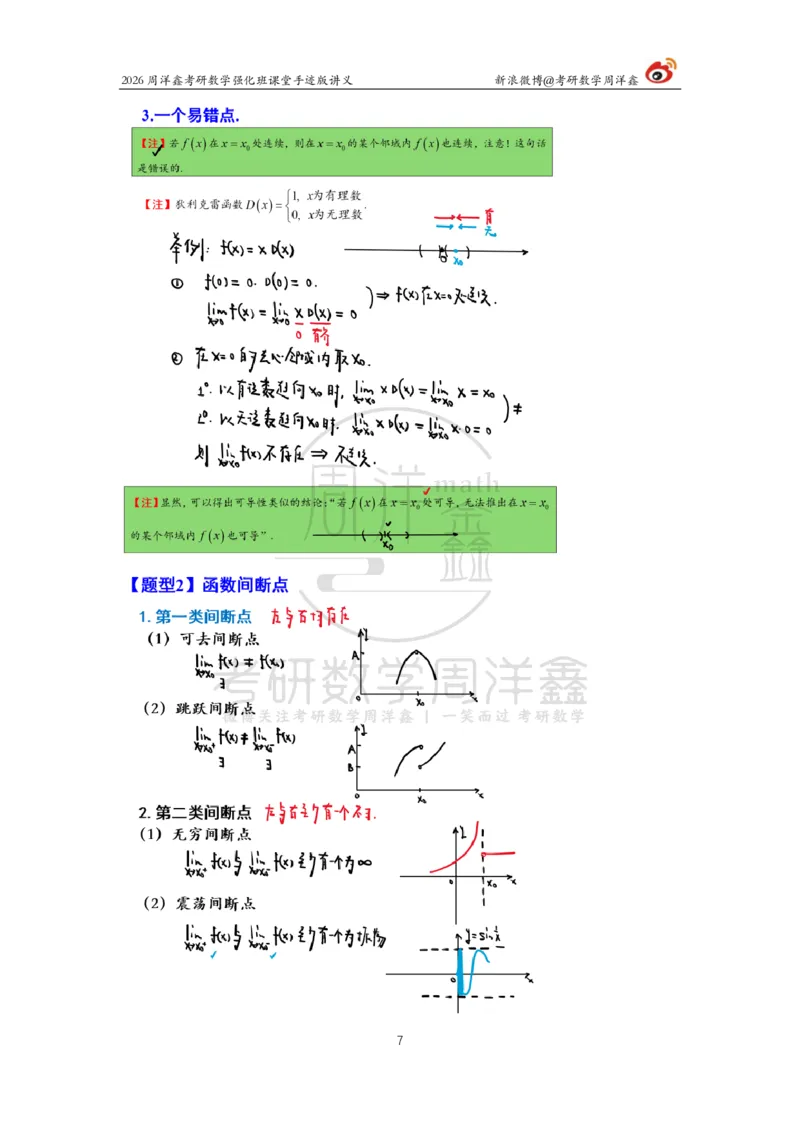 2026 周洋鑫考研数学强化班课堂手迹版讲义 新浪微博@考研数学周洋鑫
3.一个易错点.
【注】若 f(x) 在 x = x₀ 处连续，则在 x = x₀ 的某个邻域内 f(x) 也连续，注意！这句话
是错误的.
【注】狄利克雷函数 D(x) = { 1, x为有理数
0, x为无理数 .
有
无
举例: f(x) = x D(x)
x₀
① f(0) = 0·D(0) = 0.
lim x→0 f(x) = lim x→0 x D(x) = 0
0 有界
⇒ f(x)在x=0处连续.
② 在x=0的去心邻域内取x₀.
1°. 以有理数趋向x₀时, lim x→x₀ x D(x) = lim x→x₀ x = x₀
2°. 以无理数趋向x₀时. lim x→x₀ x D(x) = lim x→x₀ x·0 = 0
≠
则 lim x→x₀ f(x)不存在 ⇒ 不连续.
【注】显然，可以得出可导性类似的结论：“若 f(x) 在 x = x₀ 处可导，无法推出在 x = x₀
的某个邻域内 f(x) 也可导”.
x₀
周洋鑫 math
【题型2】函数间断点
1. 第一类间断点 左与右均存在
（1）可去间断点
lim x→x₀ f(x) ≠ f(x₀)
∃
y A 0 x₀ x
考研数学周洋鑫
（2）跳跃间断点
微博关注考研数学周洋鑫 | 一笑而过 考研数学
lim x→x₀⁺ f(x) ≠ lim x→x₀⁻ f(x)
∃ ∃
y A B 0 x₀ x
2. 第二类间断点 左与右至少有一个不∃.
（1）无穷间断点
lim x→x₀⁺ f(x)与 lim x→x₀⁻ f(x)至少有一个为∞
y 0 x₀ x
（2）震荡间断点
lim x→x₀⁺ f(x)与 lim x→x₀⁻ f(x)至少有一个为振荡
y = sin 1/x
0 x
7